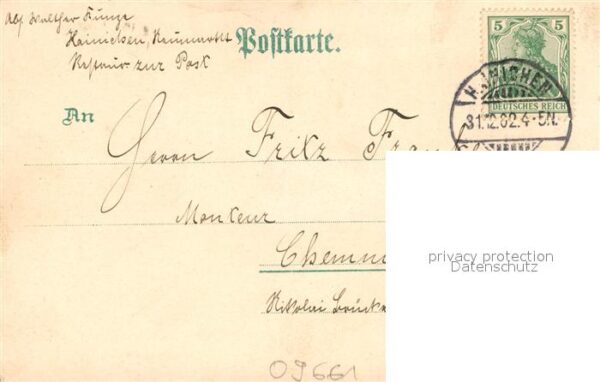 Abs. Walther Kunze
Hainichen, Neumarkt
Restaur. zur Post
Postkarte.
5 5
DEUTSCHES REICH
HAINICHEN
31.12.02.4-5N.
An
Herrn Fritz Fran
Monteur
Chemn
Nikolai Brücke
privacy protection
Datenschutz
09661